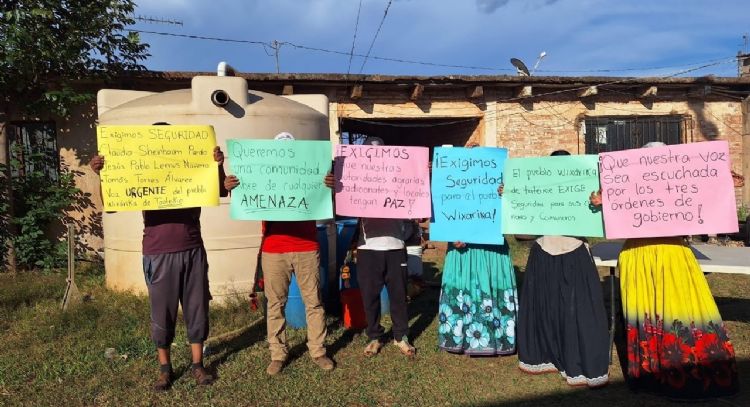 Exigimos SEGURIDAD
Claudia Sheinbaum Pardo
Jesús Pablo Lemus Navarro
Tomás Torres Álvarez
Voz URGENTE del pueblo
Wixárika de
Queremos
una comunidad
libre de cualquier
AMENAZA
¡EXIGIMOS
nuestras
autoridades agrarias
tradicionales y locales
tengan PAZ!
¡Exigimos
Seguridad
para el pueblo
Wixárika!
El pueblo Wixárika
de tutsipa EXIGE
Seguridad para su
y Comuneros
Que nuestra VOZ
sea escuchada
por los tres
órdenes de
gobierno!